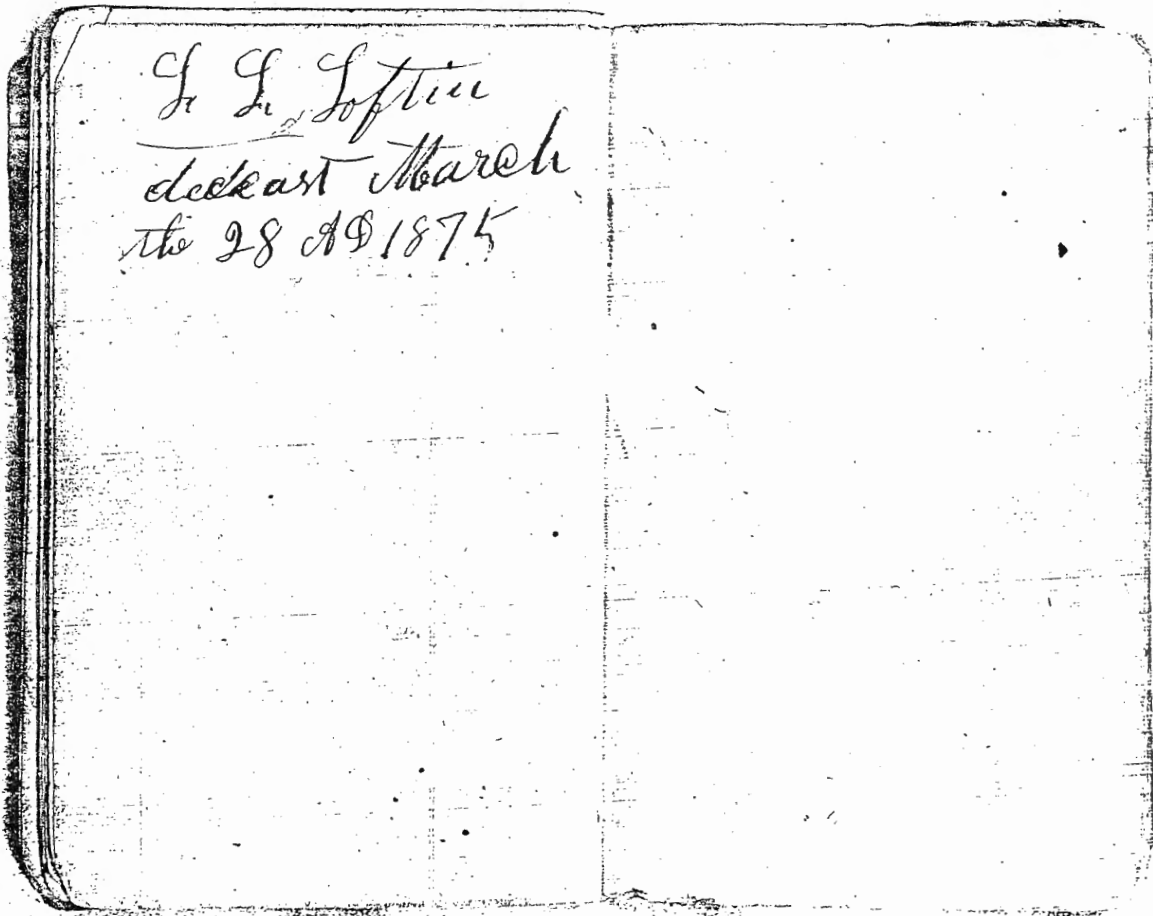 L L Loftin
deckast March
the 28 AD 1875